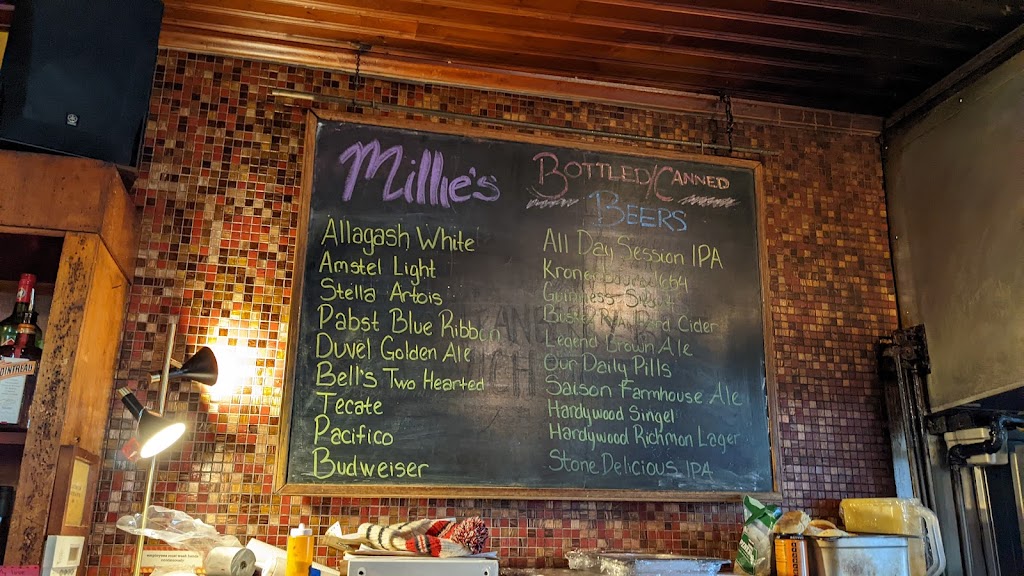 Millie's
Allagash White
Amstel Light
Stella Artois
Pabst Blue Ribbon
Duvel Golden Ale
Bell's Two Hearted
Tecate
Pacifico
Budweiser
Bottled/Canned
Beers
All Day Session IPA
1664
Guinness
Cider
Legend Brown Ale
Our Daily Pills
Saison Farmhouse Ale
Hardywood Singel
Hardywood Richmon Lager
Stone Delicious IPA